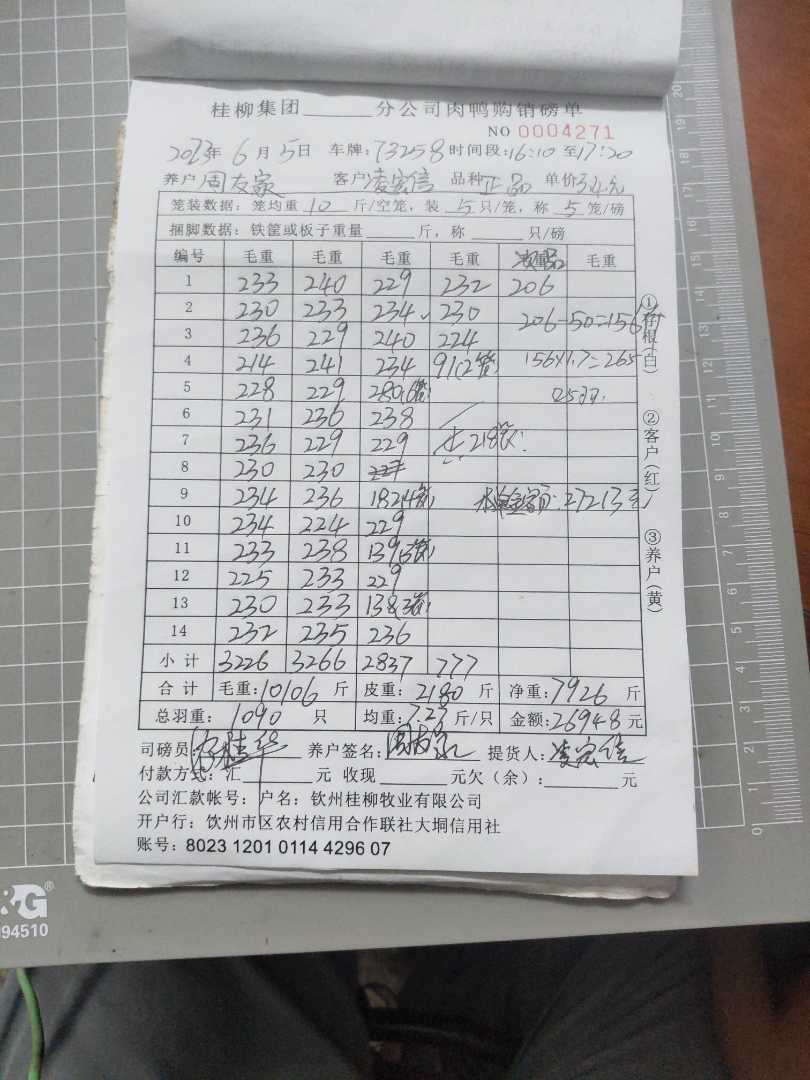 桂柳集团______分公司肉鸭购销磅单
NO 0004271
2023年 6 月 5 日 车牌:73258 时间段:16:10 至17:20
养户 周友家 客户 凌宏信 品种 正品 单价 3.4元
笼装数据: 笼均重 10 斤/空笼, 装 5 只/笼, 称 5 笼/磅
捆脚数据: 铁筐或板子重量______斤, 称______只/磅
编号 毛重 毛重 毛重 毛重 毛重
1 233 240 229 232 206
2 230 233 234 230 206-50=156斤
3 236 229 240 224
4 214 241 234 91(2笼) 156×1.7=265
5 228 229 280(6笼)
6 231 236 238
7 236 229 229 共218笼
8 230 230
9 234 236 182(4笼) 27213元
10 234 224 229
11 233 238 139(3笼)
12 225 233 229
13 230 233 138(3笼)
14 232 235 236
小 计 3226 3266 2837 777
合 计 毛重:10106 斤 皮重: 2180 斤 净重:7926 斤
总羽重: 1090 只 均重:7.27斤/只 金额:26948元
司磅员: 养户签名:周友家 提货人:凌宏信
付款方式: 汇______元 收现______元欠(余):______元
公司汇款帐号: 户名: 钦州桂柳牧业有限公司
开户行: 钦州市区农村信用合作联社大垌信用社
账号: 8023 1201 0114 4296 07
①存根(白)
②客户(红)
③养户(黄)
&G
94510